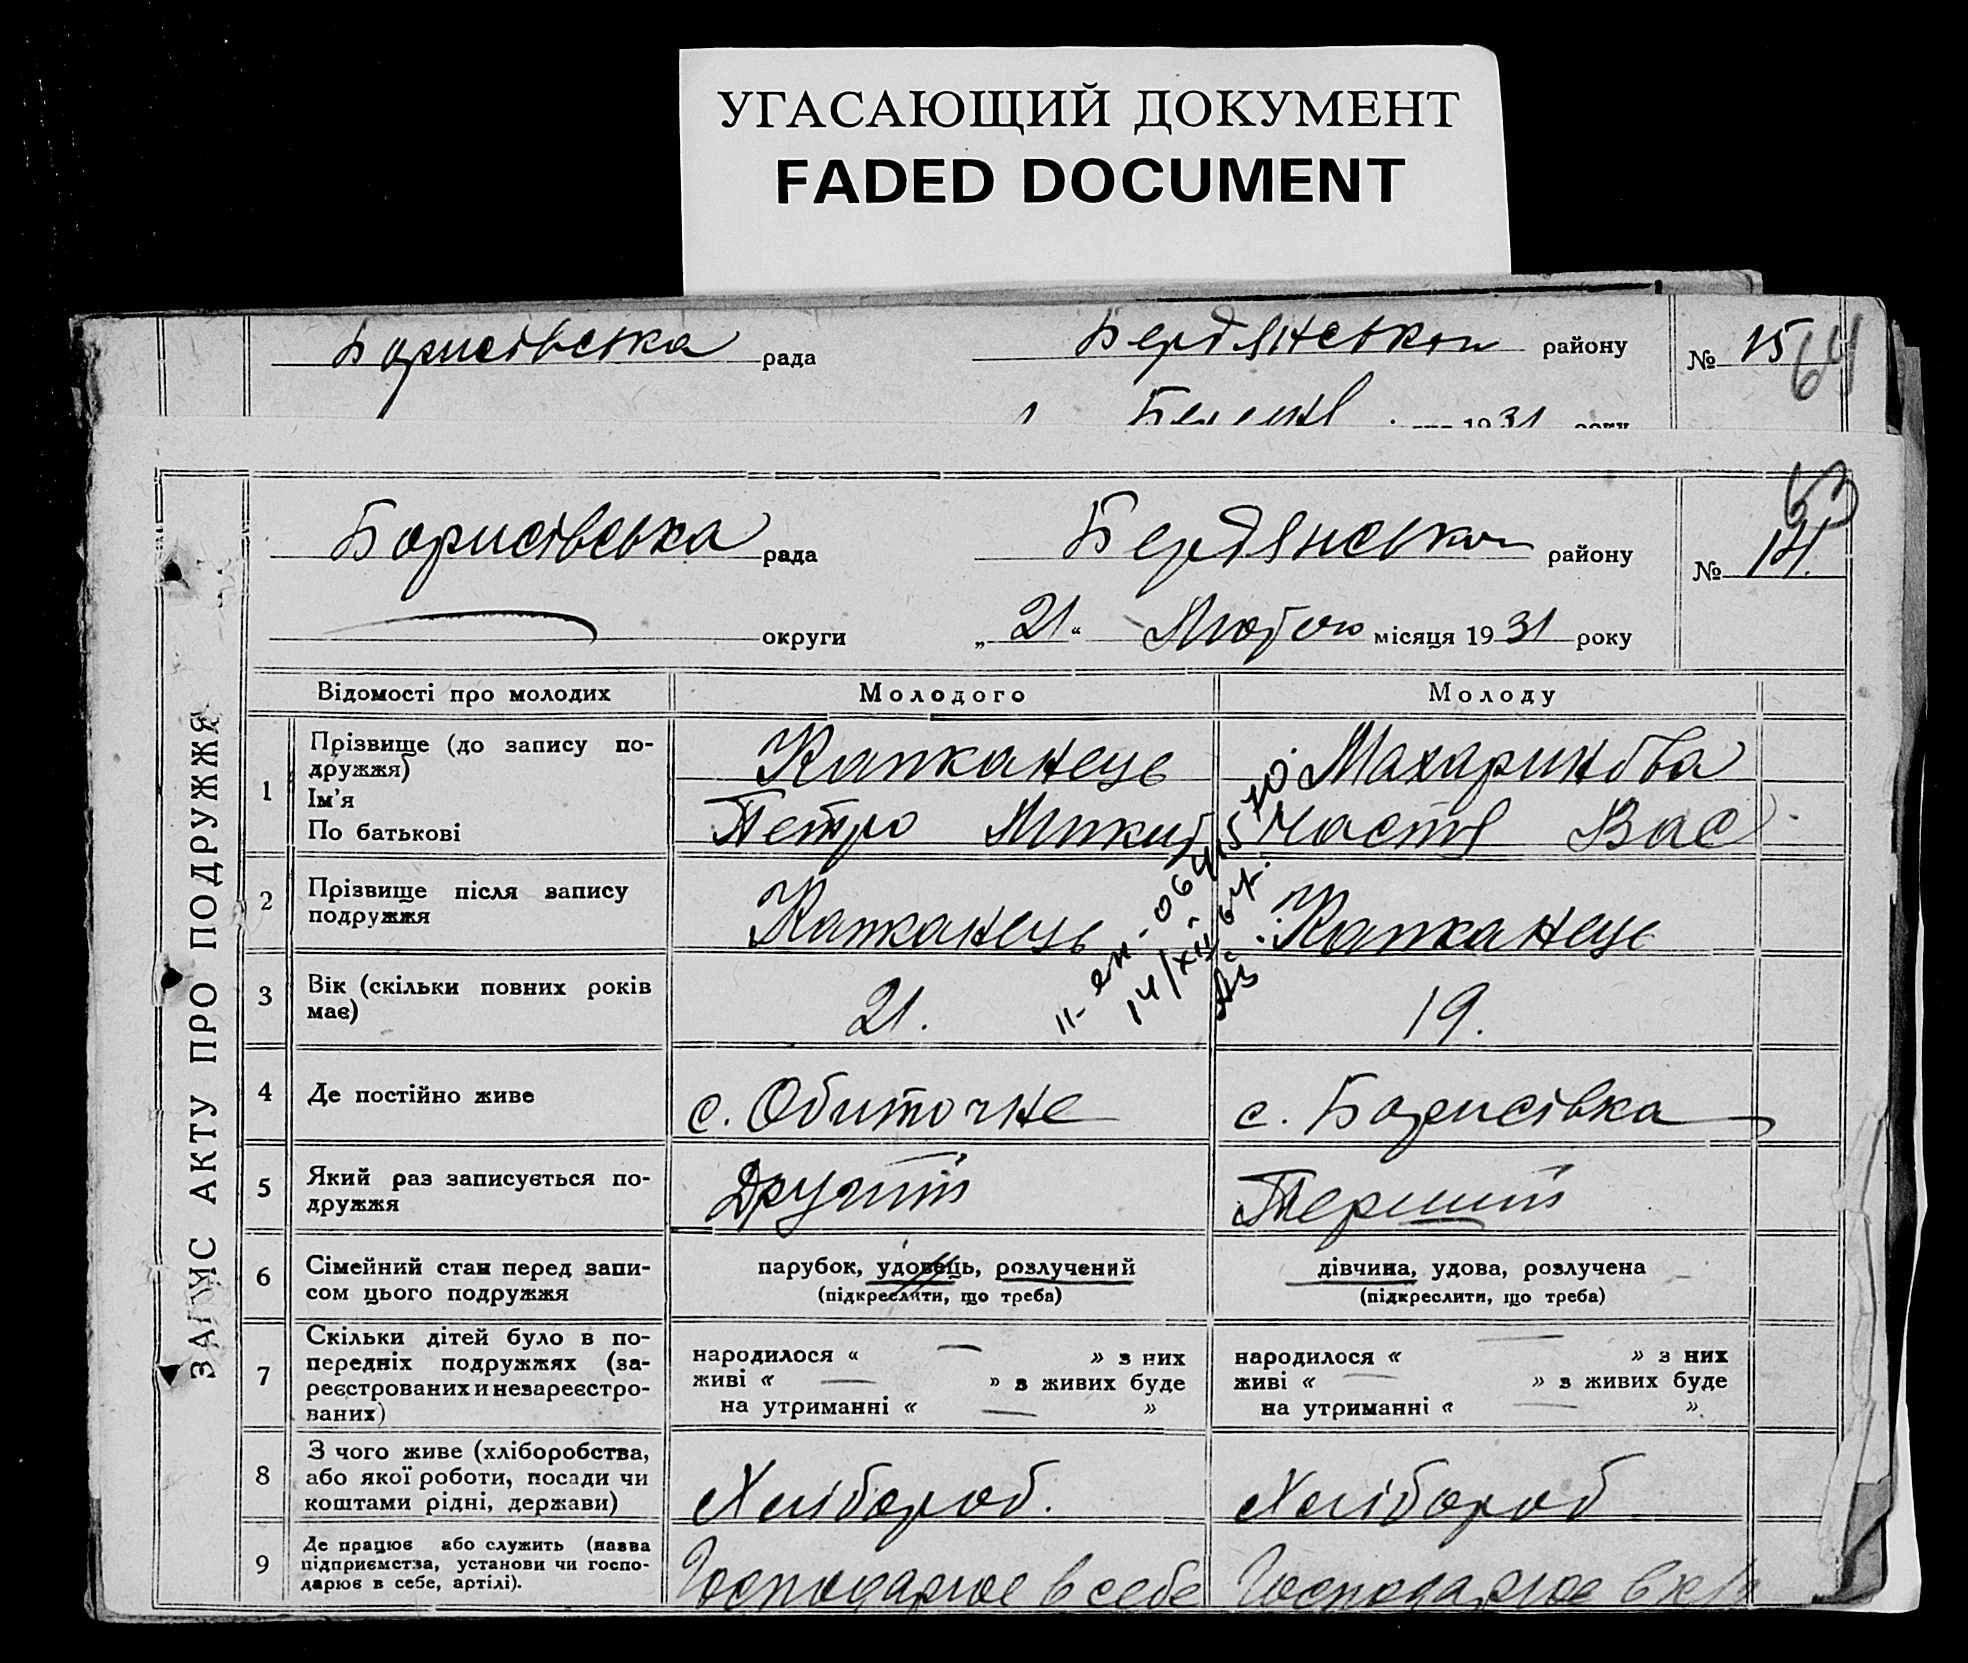 УГАСАЮЩИЙ ДОКУМЕНТ
FADED DOCUMENT
Борисівська рада Бердянського району № 15
64
1931 року
53
Борисівська рада Бердянського району № 14.
округи „21“ Лютого місяця 1931 року
ЗАПИС АКТУ ПРО ПОДРУЖЖЯ
Відомості про молодих Молодого Молоду
1 Прізвище (до запису по-
дружжя)
Ім'я
По батькові
Капканець Махаринова
Петро Микит Настя Вас
2 Прізвище після запису
подружжя
Капканець Капканець
14/XII
3 Вік (скільки повних років
має)
21. 19.
4 Де постійно живе с. Обиточне с. Борисівка
5 Який раз записується по-
дружжя
Другий Перший
6 Сімейний стан перед запи-
сом цього подружжя
парубок, удовець, розлучений
(підкреслити, що треба)
дівчина, удова, розлучена
(підкреслити, що треба)
7 Скільки дітей було в по-
передніх подружжях (за-
реєстрованих и незареєстро-
ваних)
народилося « — » з них
живі « — » з живих буде
на утриманні « — »
народилося « — » з них
живі « — » з живих буде
на утриманні « — »
8 З чого живе (хліборобства,
або якої роботи, посади чи
коштами рідні, держави)
Хлібороб. Хлібороб
9 Де працює або служить (назва
підприємства, установи чи госпо-
дарює в себе, артілі).
Господарює в себе Господарює в